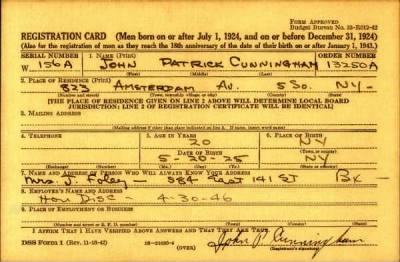 FORM APPROVED
Budget Bureau No. 33-R019-42
REGISTRATION CARD (Men born on or after July 1, 1924, and on or before December 31, 1924)
(Also for the registration of men as they reach the 18th anniversary of the date of their birth on or after January 1, 1943.)
SERIAL NUMBER 1. NAME (Print) ORDER NUMBER
W 156A JOHN PATRICK CUNNINGHAM 13250A
(First) (Middle) (Last)
2. PLACE OF RESIDENCE (Print)
823 AMSTERDAM AV. 5 SO. NY-
(Number and street) (Town, township, village, or city) (County) (State)
[THE PLACE OF RESIDENCE GIVEN ON LINE 2 ABOVE WILL DETERMINE LOCAL BOARD
JURISDICTION; LINE 2 OF REGISTRATION CERTIFICATE WILL BE IDENTICAL]
3. MAILING ADDRESS
(Mailing address if other than place indicated on line 2. If same, insert word same)
4. TELEPHONE 5. AGE IN YEARS 6. PLACE OF BIRTH
20 NY
DATE OF BIRTH (Town or county)
5-20-25 NY
(Exchange) (Number) (Mo.) (Day) (Yr.) (State or country)
7. NAME AND ADDRESS OF PERSON WHO WILL ALWAYS KNOW YOUR ADDRESS
Mrs. J. Foley - 584 East 141 St Bx-
8. EMPLOYER'S NAME AND ADDRESS
Hon Disc - 4-30-46
9. PLACE OF EMPLOYMENT OR BUSINESS
(Number and street or R. F. D. number) (Town) (County) (State)
I AFFIRM THAT I HAVE VERIFIED ABOVE ANSWERS AND THAT THEY ARE TRUE.
DSS Form 1 (Rev. 11-16-42) (OVER) John P. Cunningham
(Registrant's signature)